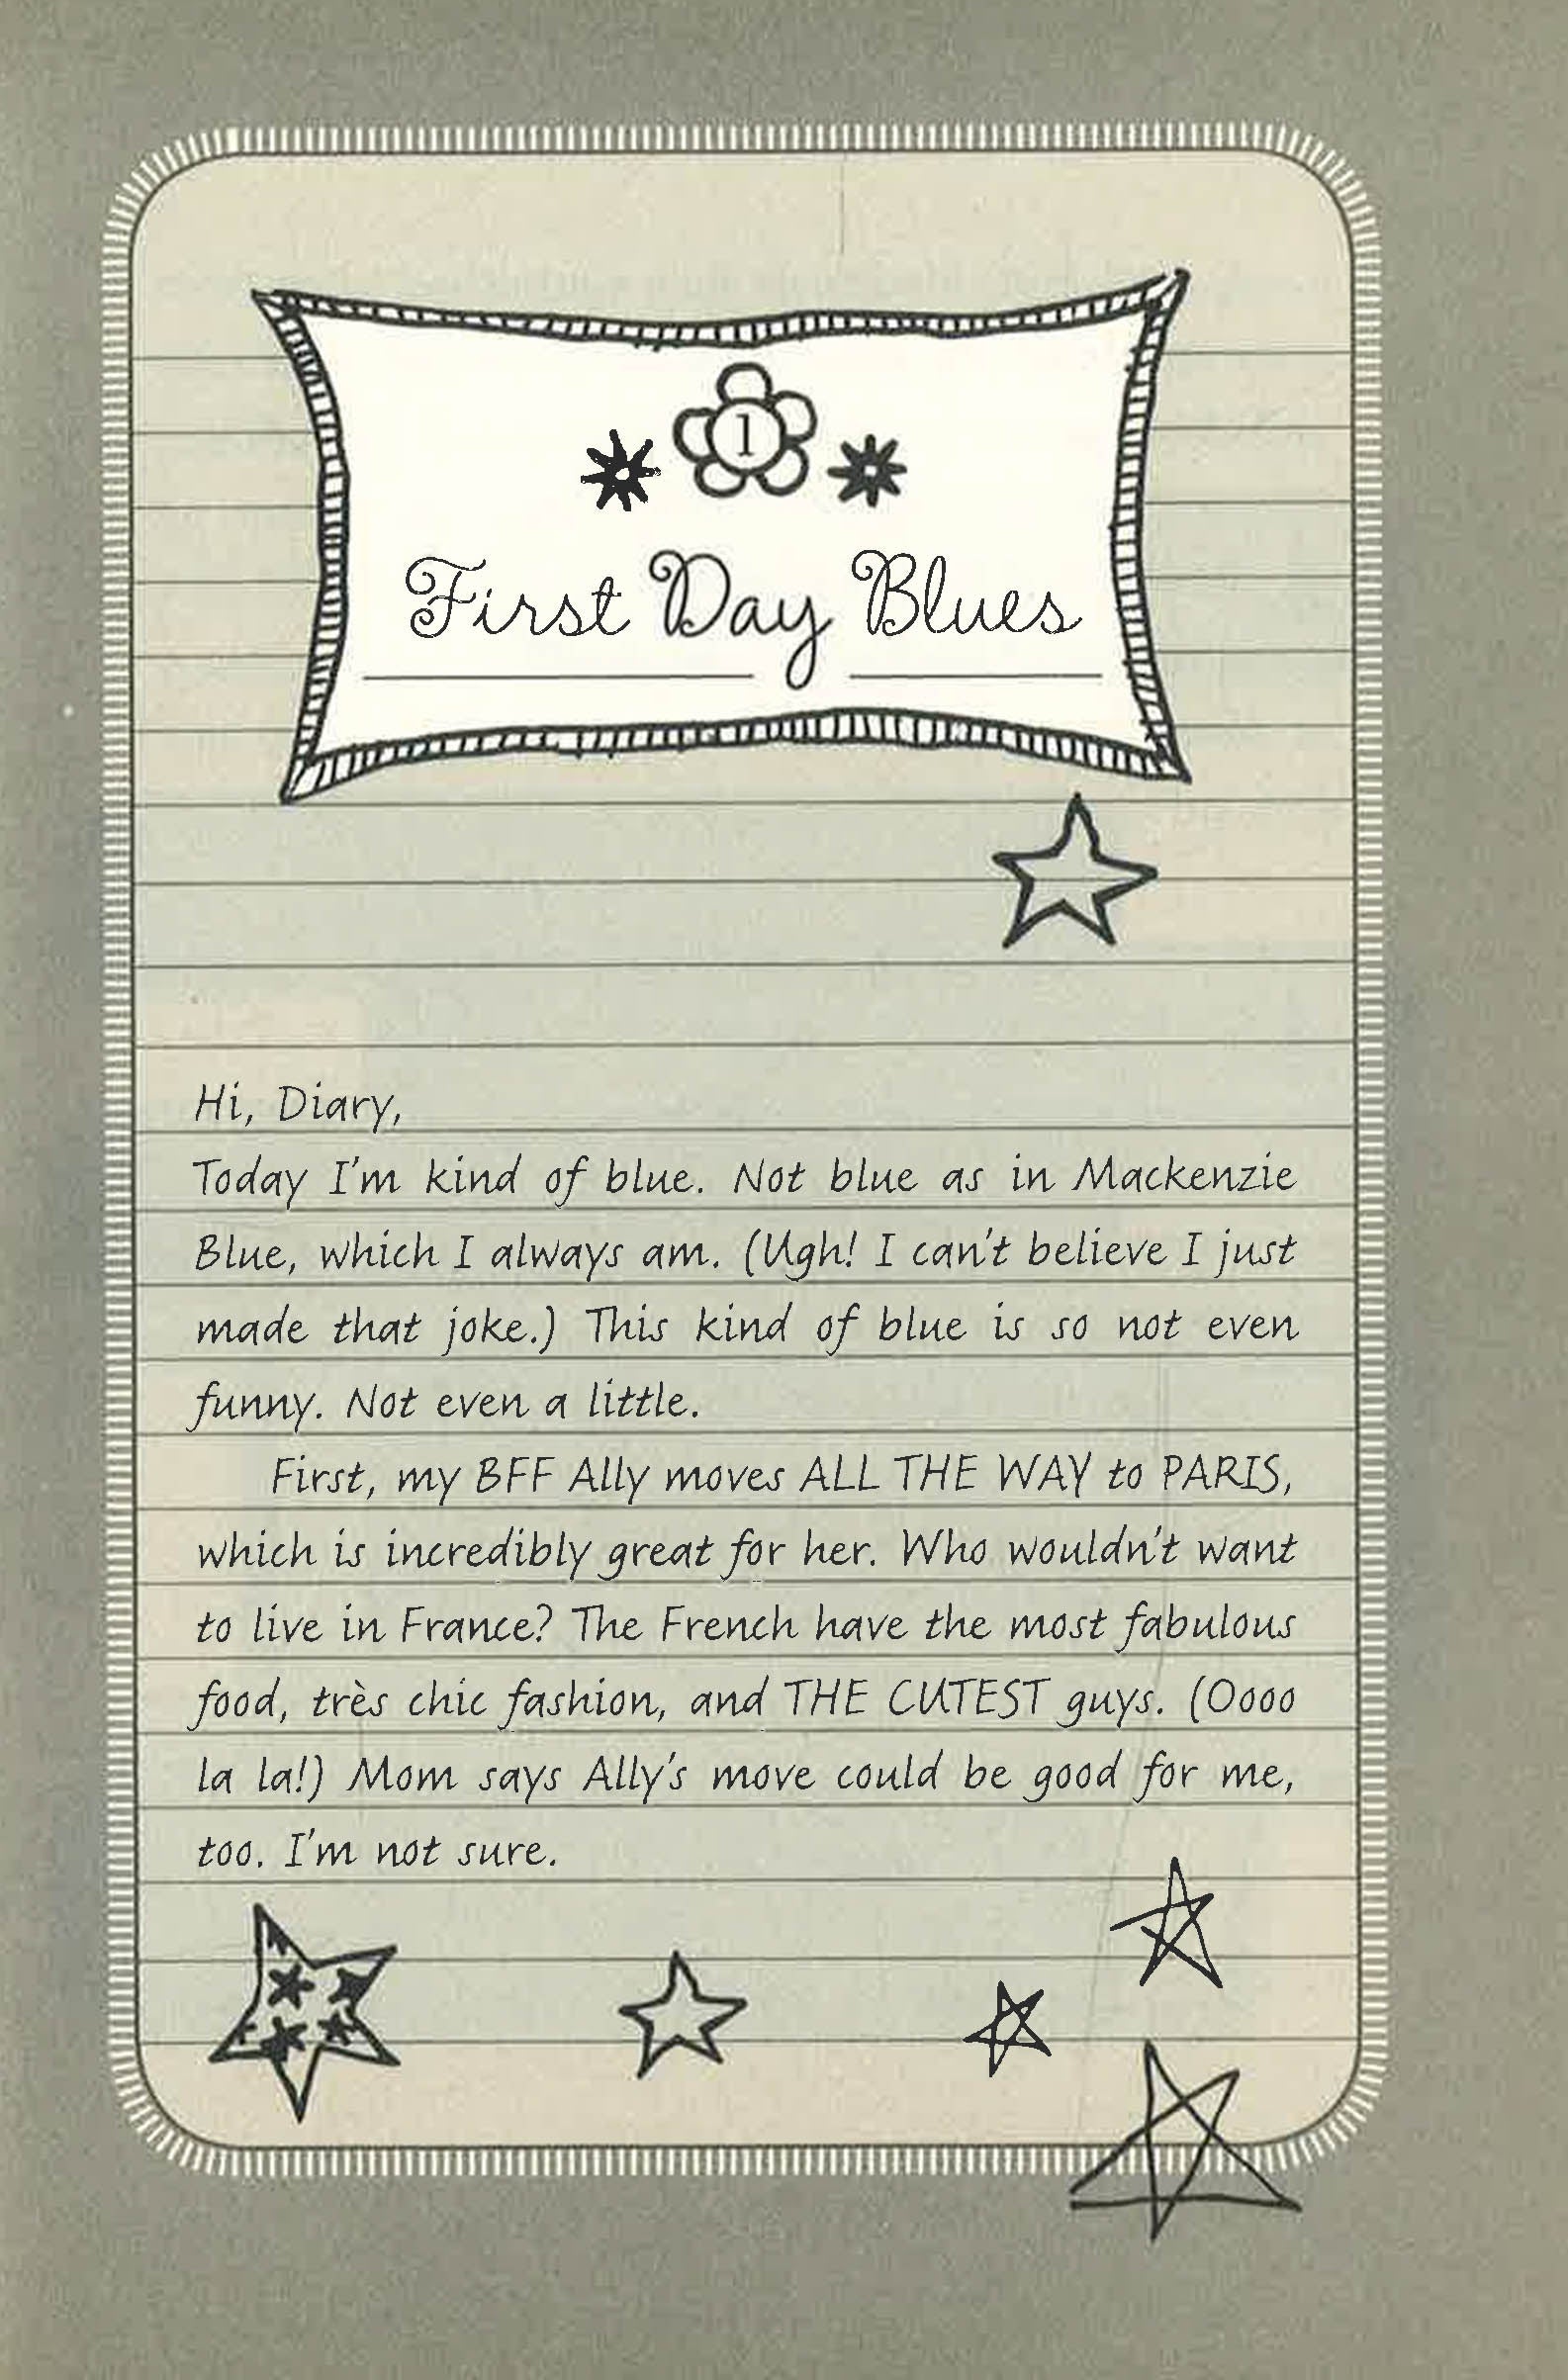 1
First Day Blues
Hi, Diary,
Today I'm kind of blue. Not blue as in Mackenzie
Blue, which I always am. (Ugh! I can't believe I just
made that joke.) This kind of blue is so not even
funny. Not even a little.
First, my BFF Ally moves ALL THE WAY to PARIS,
which is incredibly great for her. Who wouldn't want
to live in France? The French have the most fabulous
food, très chic fashion, and THE CUTEST guys. (Oooo
la la!) Mom says Ally's move could be good for me,
too. I'm not sure.